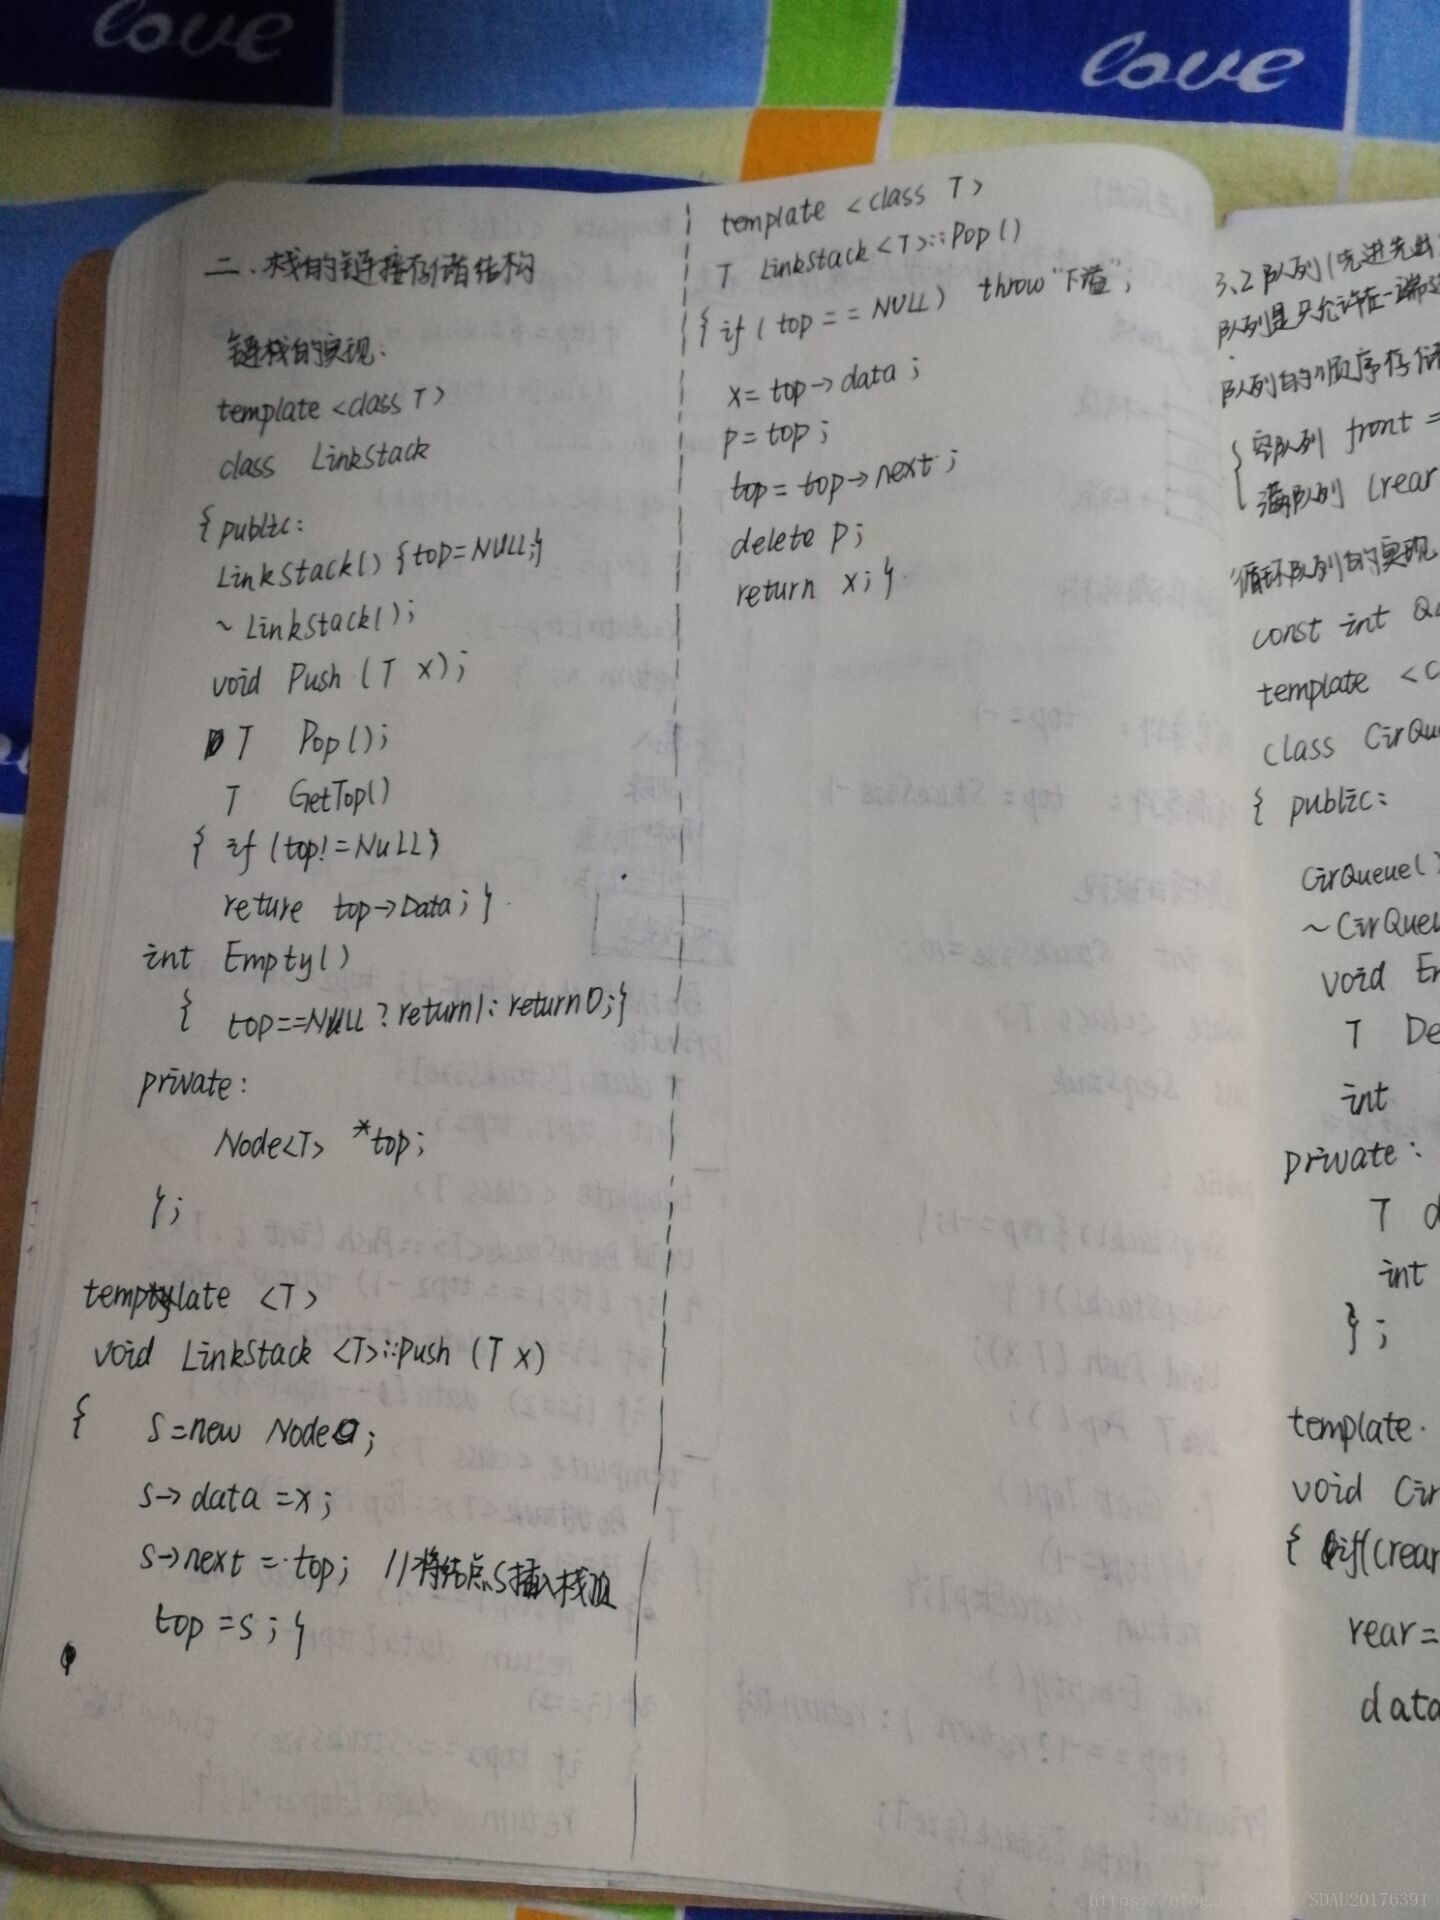 love
love
二、栈的链接存储结构
链栈的实现:
template <class T>
class LinkStack
{ public:
LinkStack() {top=NULL;}
~ LinkStack();
void Push (T x);
T Pop();
T GetTop()
{ if (top!=NULL)
reture top→Data; }
int Empty()
{ top==NULL ? return 1: return 0;}
private:
Node<T> *top;
};
template <T>
void LinkStack <T>::Push (T x)
{ s=new Node;
s→data =x;
s→next = top; //将结点s插入栈顶
top =s; }
template <class T>
T LinkStack<T>::Pop()
{ if ( top == NULL) throw "下溢";
x= top→data;
p=top;
top= top→next;
delete p;
return x; }
3.2 队列(先进先出
队列是只允许在一端
队列的顺序存储
空队列 front =
满队列 (rear
循环队列的实现
const int Qu
template <c
class CirQu
{ public:
CirQueue()
~CirQueu
void En
T De
int
private:
T d
int
};
template
void Cir
{ if((rear
rear=
data
SDAU20176391